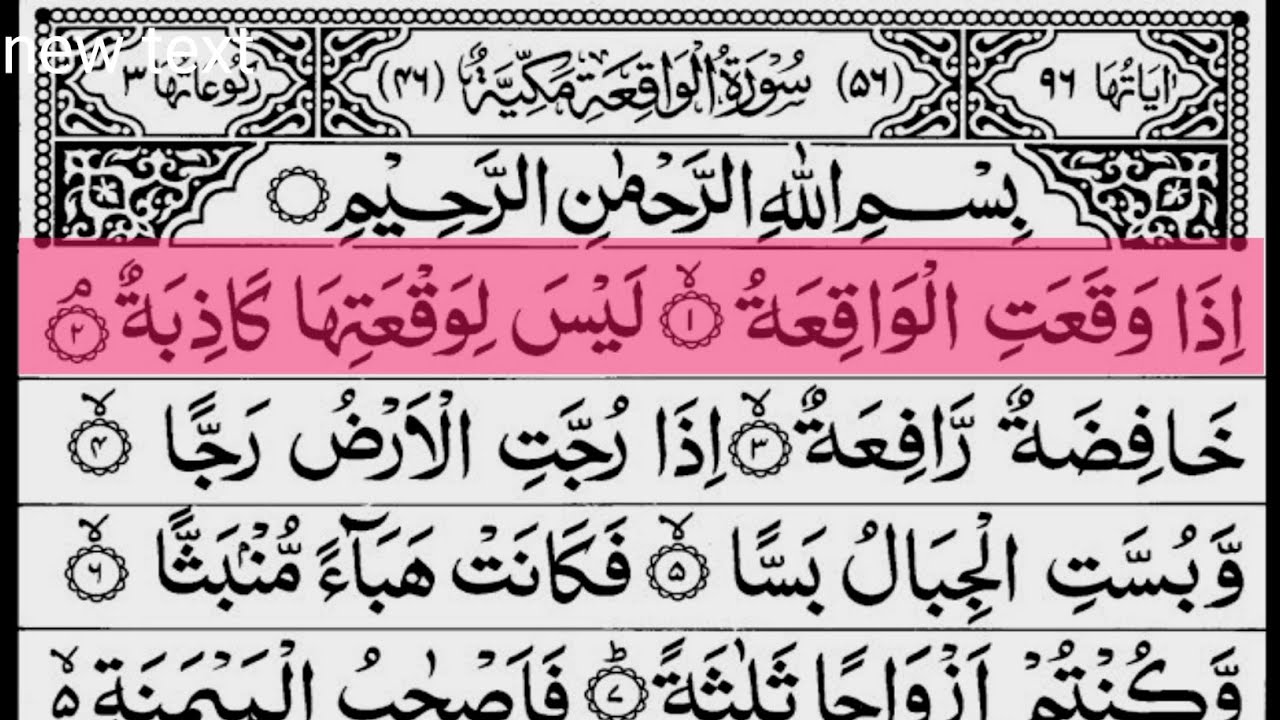 new text
اٰيَاتُهَا ٩٦ (٥٦) سُوْرَةُ الْوَاقِعَةِ مَكِّيَّةٌ (٤٦) رُكُوْعَاتُهَا ٣
بِسْمِ اللّٰهِ الرَّحْمٰنِ الرَّحِيْمِ
اِذَا وَقَعَتِ الْوَاقِعَةُ ۙ‏﴿١﴾ لَيْسَ لِوَقْعَتِهَا كَاذِبَةٌ ۘ‏﴿٢﴾
خَافِضَةٌ رَّافِعَةٌ ۙ‏﴿٣﴾ اِذَا رُجَّتِ الْاَرْضُ رَجًّا ۙ‏﴿٤﴾
وَّبُسَّتِ الْجِبَالُ بَسًّا ۙ‏﴿٥﴾ فَكَانَتْ هَبَآءً مُّنْۢبَثًّا ۙ‏﴿٦﴾
وَّكُنْتُمْ اَزْوَاجًا ثَلٰثَةً ؕ‏﴿٧﴾ فَاَصْحٰبُ الْمَيْمَنَةِ ۙ۵